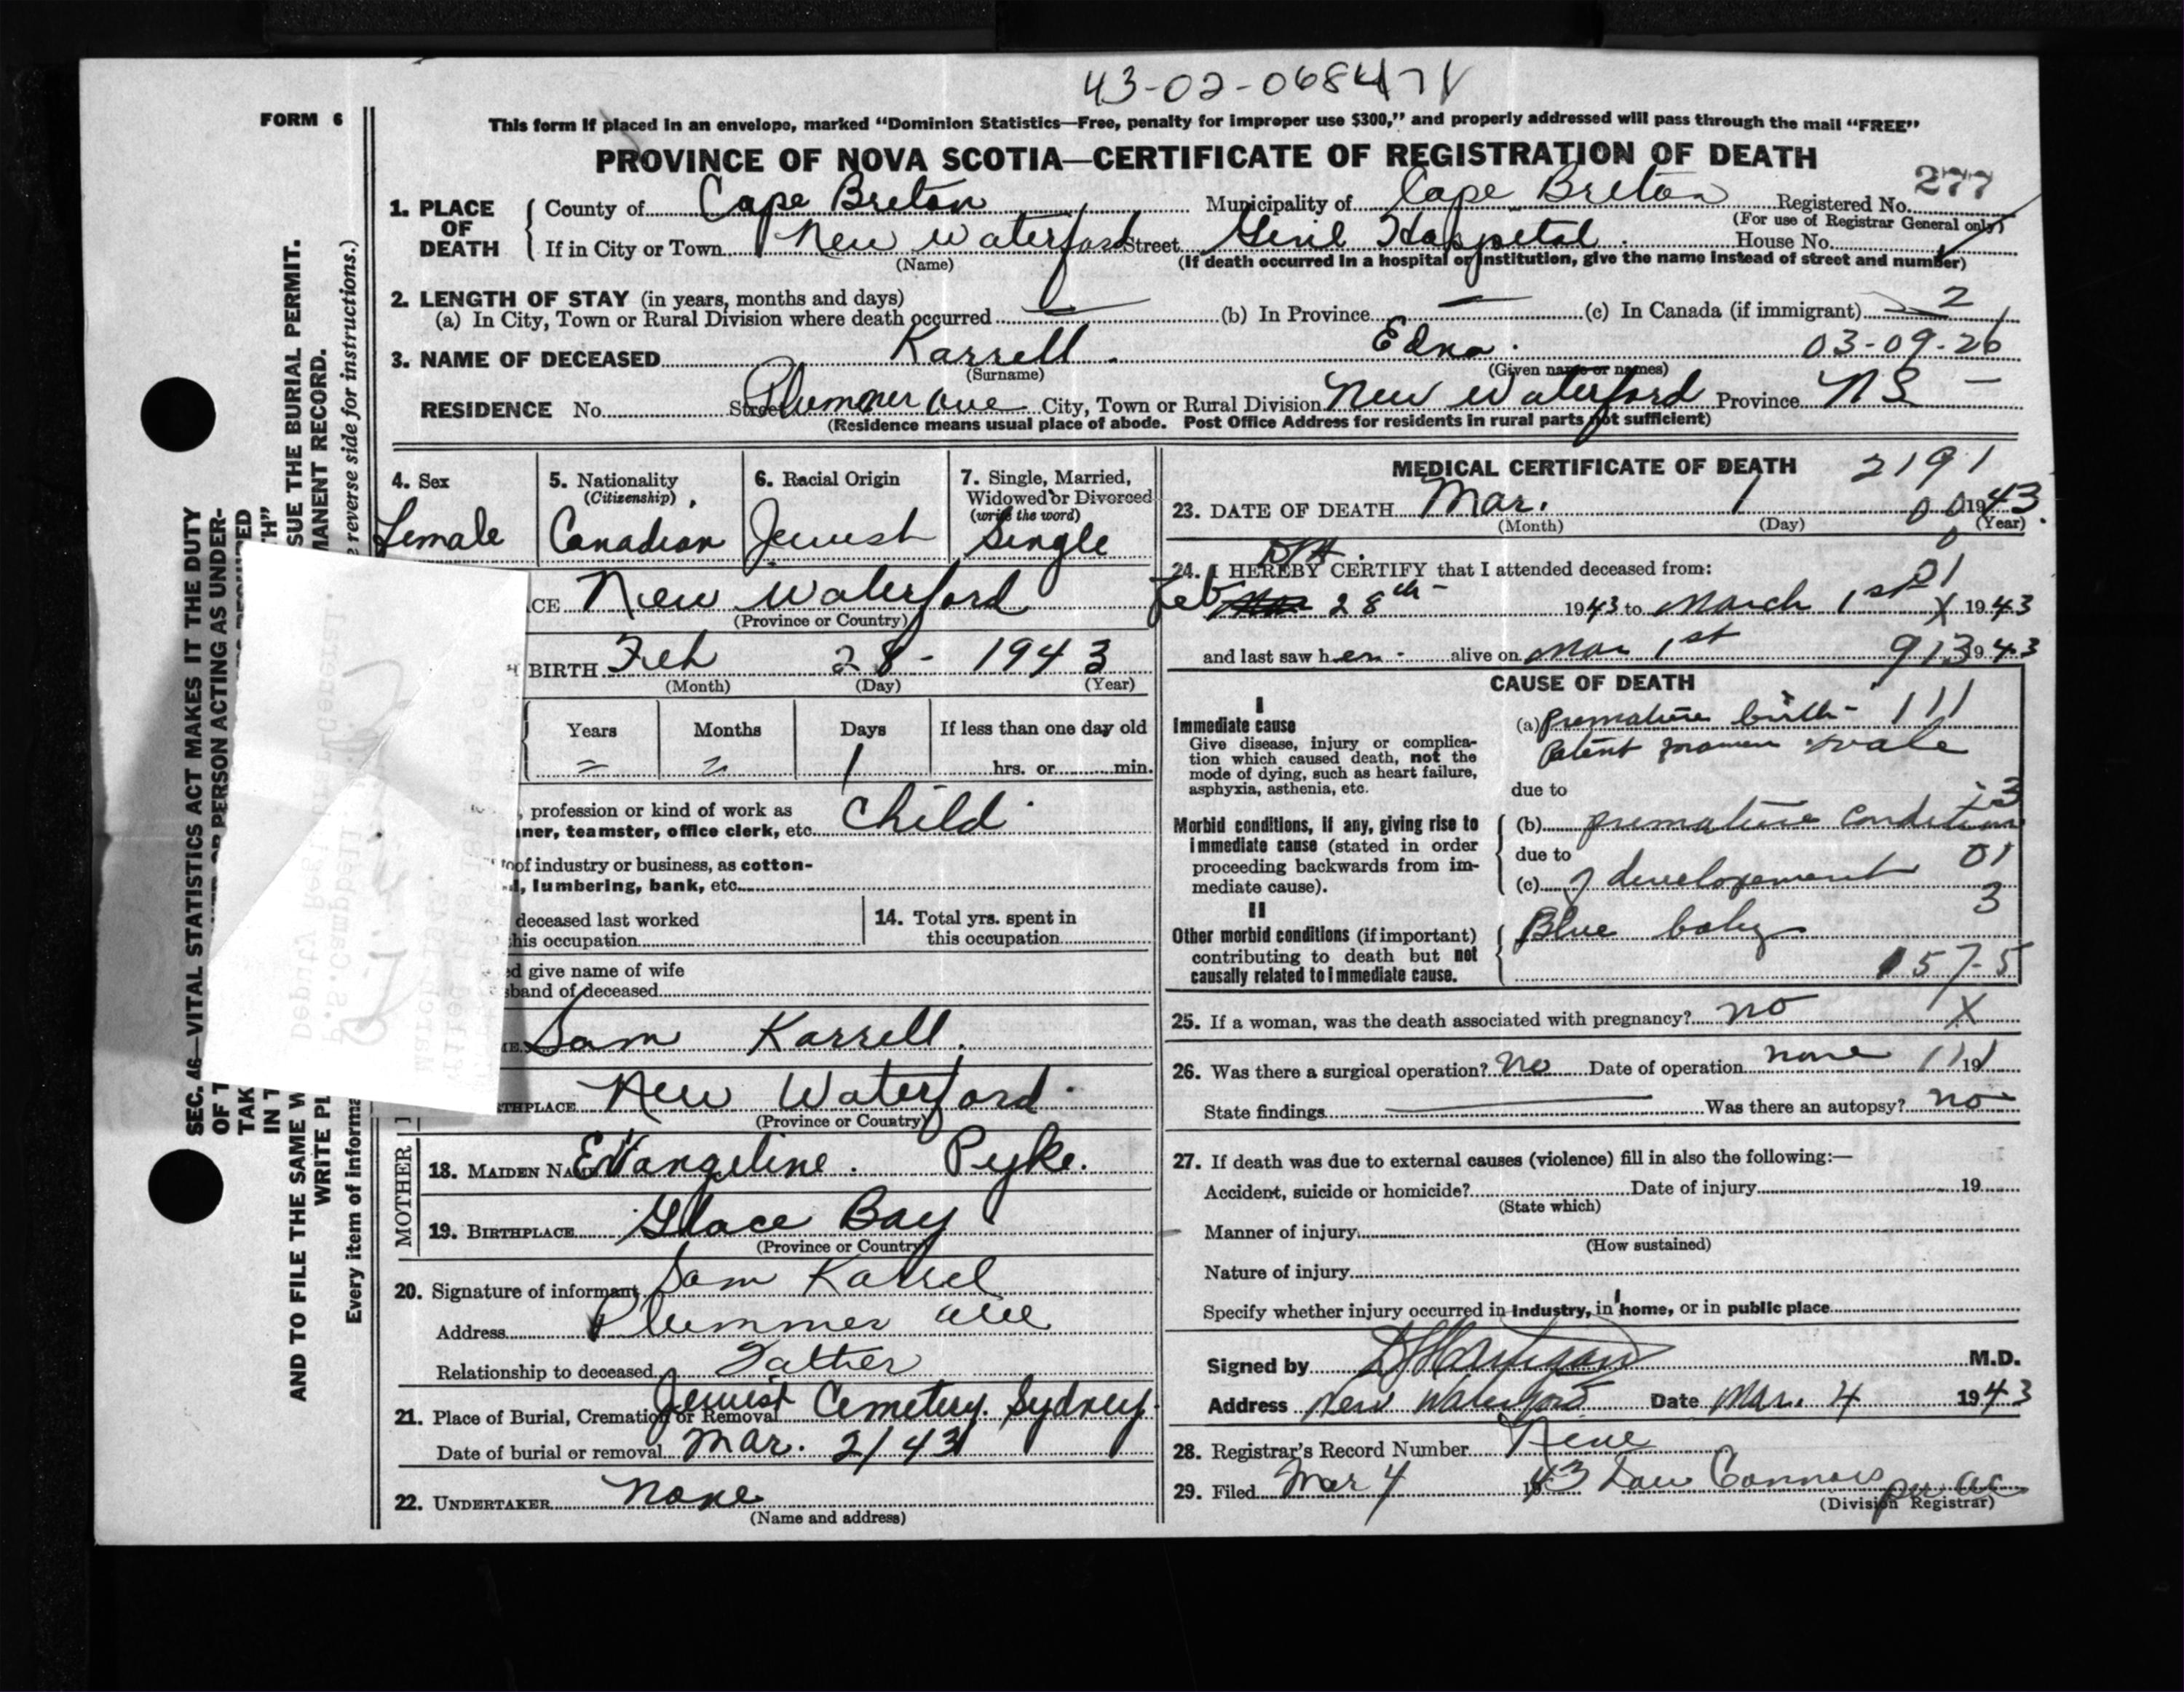 43-02-068471
FORM 6
This form if placed in an envelope, marked "Dominion Statistics—Free, penalty for improper use $300," and properly addressed will pass through the mail "FREE"
PROVINCE OF NOVA SCOTIA—CERTIFICATE OF REGISTRATION OF DEATH
277
1. PLACE OF DEATH County of Cape Breton Municipality of Cape Breton Registered No.
(For use of Registrar General only)
If in City or Town New Waterford Street Genl Hospital. House No.
(Name) (If death occurred in a hospital or institution, give the name instead of street and number)
2. LENGTH OF STAY (in years, months and days)
(a) In City, Town or Rural Division where death occurred — (b) In Province — (c) In Canada (if immigrant) 2
3. NAME OF DECEASED Karrell. Edna. 03-09-26
(Surname) (Given name or names)
RESIDENCE No. Street Plummer Ave City, Town or Rural Division New Waterford Province NS —
(Residence means usual place of abode. Post Office Address for residents in rural parts not sufficient)
4. Sex
Female
5. Nationality
(Citizenship)
Canadian
6. Racial Origin
Jewish
7. Single, Married,
Widowed or Divorced
(write the word)
Single
CE New Waterford
(Province or Country)
BIRTH Feb 28 - 1943
(Month) (Day) (Year)
Years Months Days If less than one day old
1 hrs. or min.
, profession or kind of work as
ner, teamster, office clerk, etc. Child
of industry or business, as cotton-
, lumbering, bank, etc.
deceased last worked
this occupation
14. Total yrs. spent in
this occupation
ed give name of wife
sband of deceased
Sam Karrell.
THPLACE New Waterford
(Province or Country)
MOTHER
18. MAIDEN NAME Evangeline. Pyke.
19. BIRTHPLACE Glace Bay
(Province or Country)
20. Signature of informant Sam Karrel
Address Plummer Ave
Relationship to deceased Father
21. Place of Burial, Cremation or Removal Jewish Cemetery. Sydney.
Date of burial or removal Mar. 2/43
22. UNDERTAKER None
(Name and address)
MEDICAL CERTIFICATE OF DEATH 2191
23. DATE OF DEATH Mar. 1 00 1943
(Month) (Day) (Year)
24. I HEREBY CERTIFY that I attended deceased from: 01
Feb 28th - 1943 to March 1st X 1943
and last saw her alive on Mar 1st 913 1943
CAUSE OF DEATH
I
Immediate cause
Give disease, injury or complica-
tion which caused death, not the
mode of dying, such as heart failure,
asphyxia, asthenia, etc.
(a) Premature birth - 111
Patent foramen ovale
due to
3
Morbid conditions, if any, giving rise to
immediate cause (stated in order
proceeding backwards from im-
mediate cause).
(b) premature condition
due to 01
(c) of developement
3
II
Other morbid conditions (if important)
contributing to death but not
causally related to immediate cause.
Blue baby
157-5
25. If a woman, was the death associated with pregnancy? no X
26. Was there a surgical operation? No Date of operation none 19
State findings Was there an autopsy? no
27. If death was due to external causes (violence) fill in also the following:—
Accident, suicide or homicide? Date of injury 19
(State which)
Manner of injury
(How sustained)
Nature of injury
Specify whether injury occurred in industry, in home, or in public place
Signed by M.D.
Address New Waterford Date Mar. 4 1943
28. Registrar's Record Number Nine
29. Filed Mar 4 1943 Dan Connors per ac
(Division Registrar)
SEC. 46—VITAL STATISTICS ACT MAKES IT THE DUTY
OF T OR PERSON ACTING AS UNDER-
TAK
IN T TH"
AND TO FILE THE SAME W SUE THE BURIAL PERMIT.
WRITE PL MANENT RECORD.
Every item of informa reverse side for instructions.)